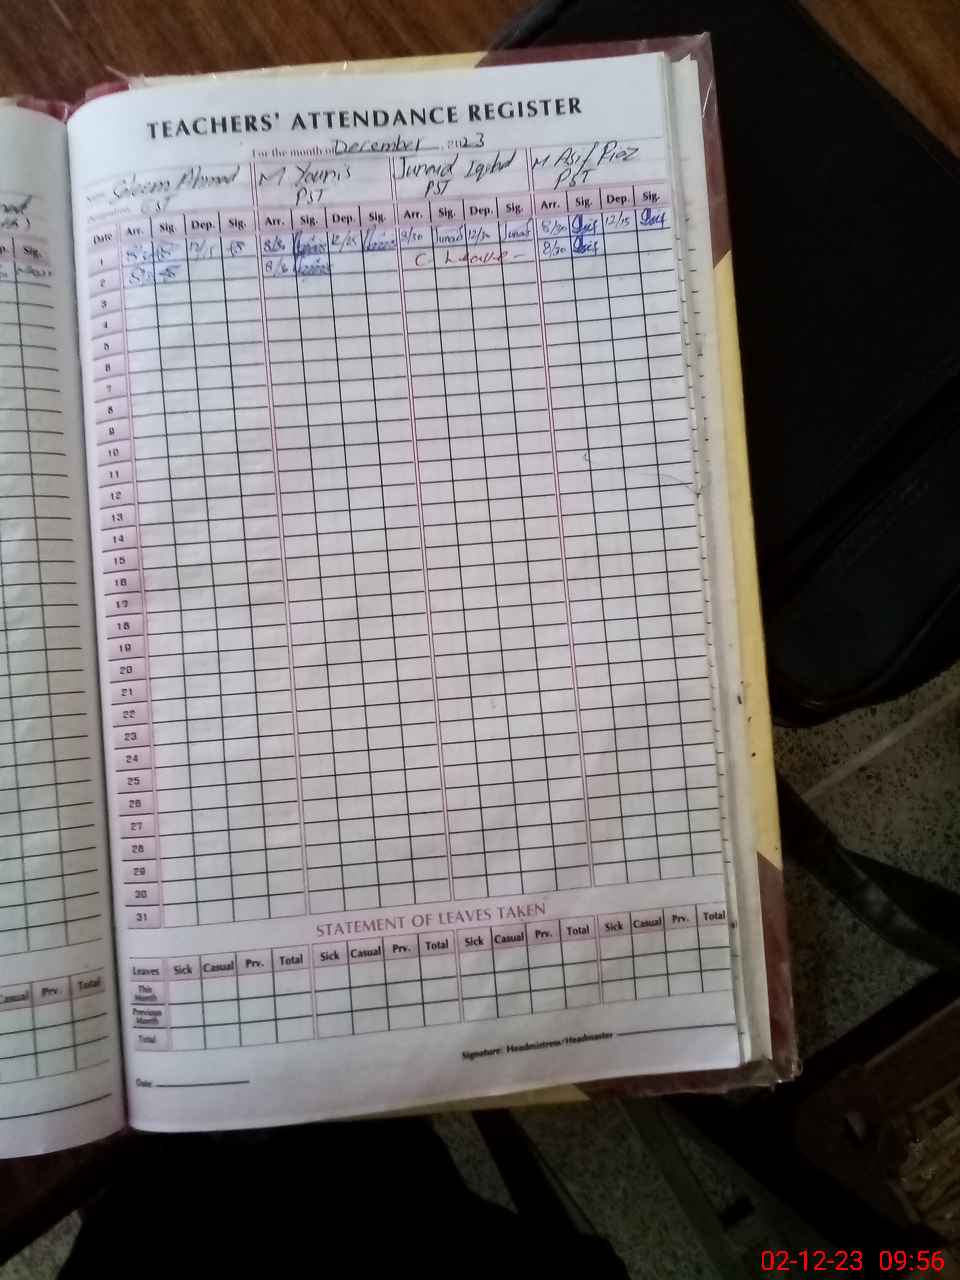 TEACHERS' ATTENDANCE REGISTER
For the month of December 2023
Name Saleem Ahmad M Younis Junaid Iqbal M Asif Riaz
Designation PST PST PST
Date Arr. Sig. Dep. Sig. Arr. Sig. Dep. Sig. Arr. Sig. Dep. Sig. Arr. Sig. Dep. Sig.
1 8/30 12/15 8/30 Junaid 12/30 Junaid 8/30 Asif 12/15 Asif
2 C Leave - 8/30 Asif
3
4
5
6
7
8
9
10
11
12
13
14
15
16
17
18
19
20
21
22
23
24
25
26
27
28
29
30
31
STATEMENT OF LEAVES TAKEN
Leaves Sick Casual Prv. Total Sick Casual Prv. Total Sick Casual Prv. Total Sick Casual Prv. Total
This Month
Previous Month
Total
Signature: Headmistress/Headmaster
Date
Sig.
Casual Prv. Total
02-12-23 09:56